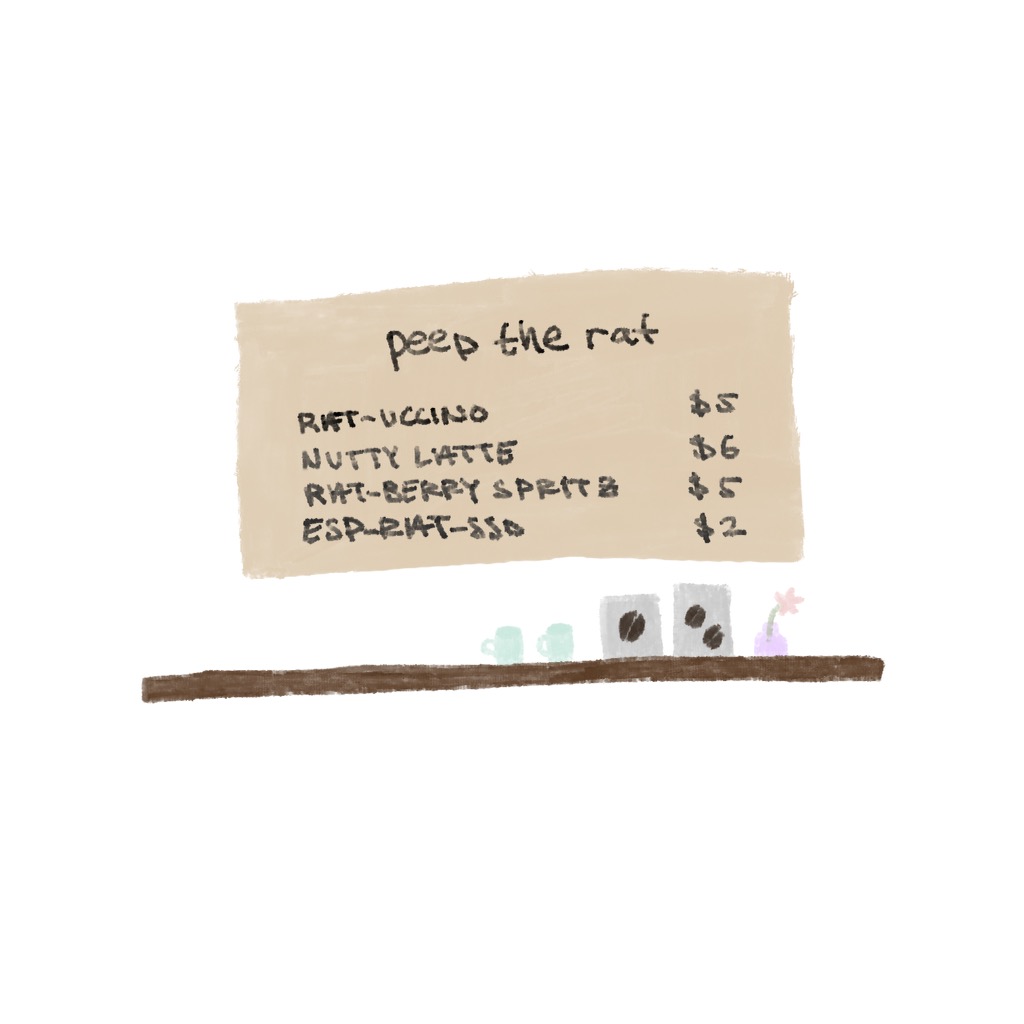 peep the rat
RAT-UCCINO $5
NUTTY LATTE $6
RAT-BERRY SPRITZ $5
ESP-RAT-SSO $2